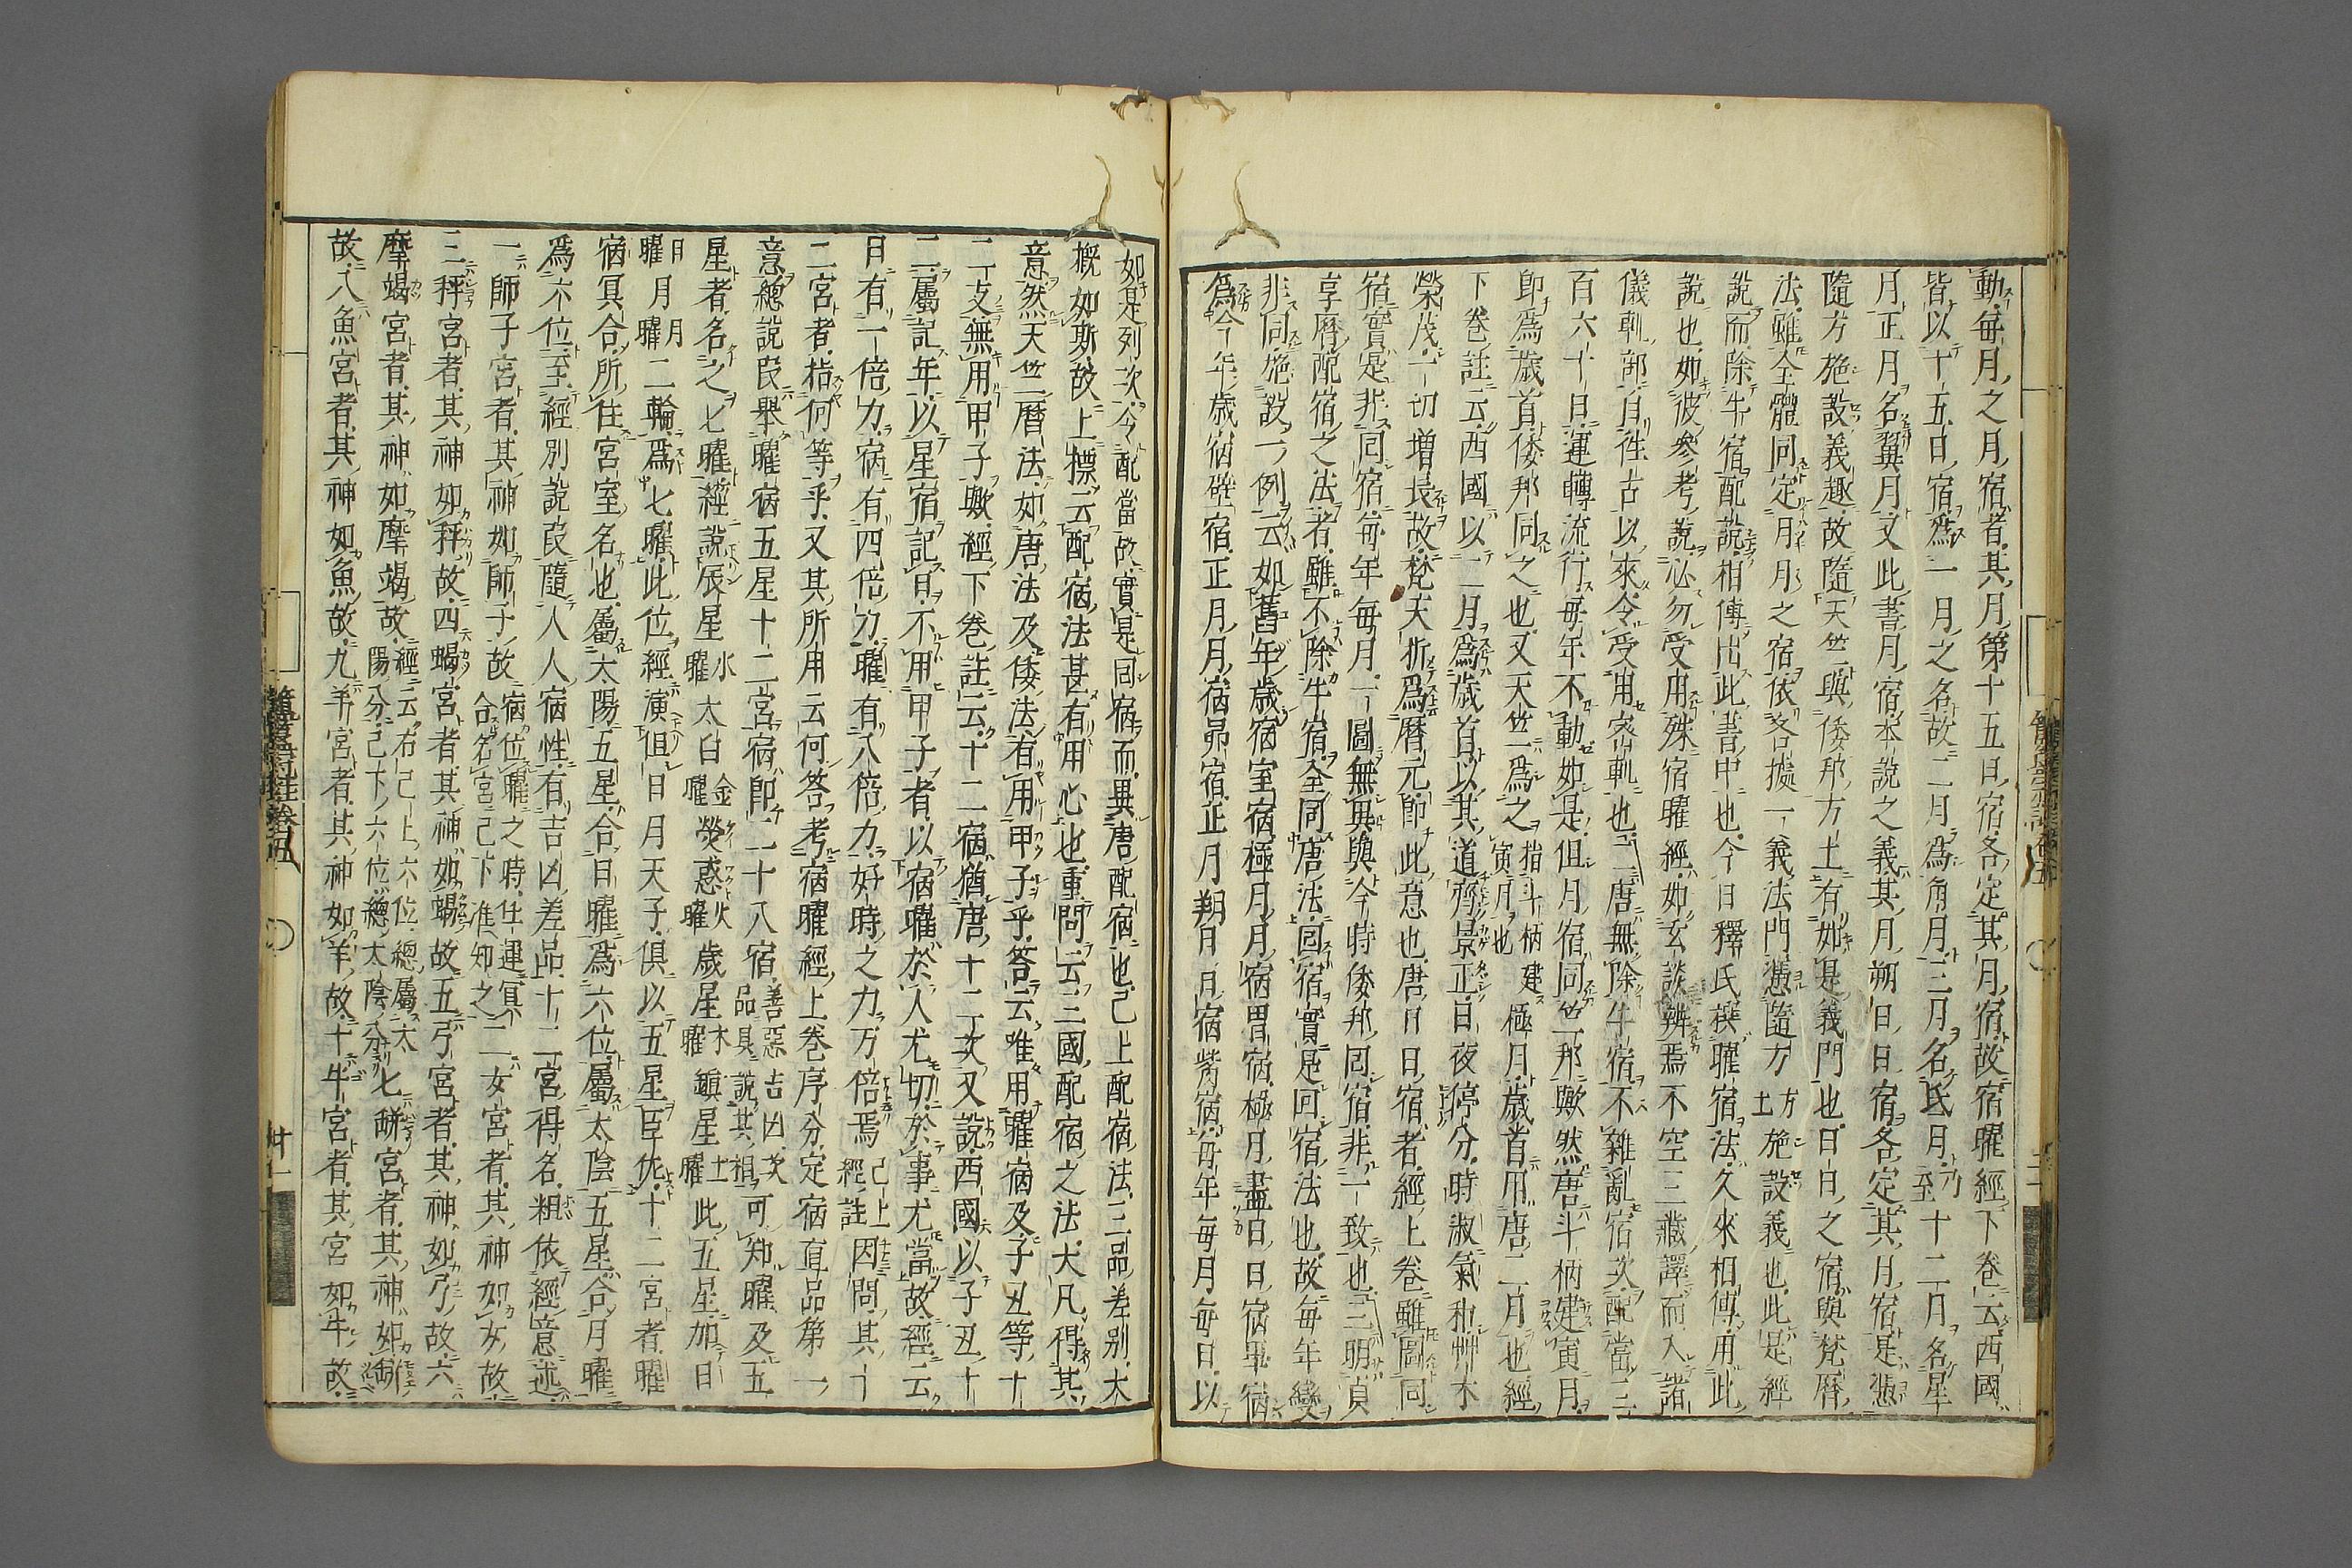 動毎月之月宿者其月第十五日宿各定其月宿故宿曜經下卷云西國
皆以十五日宿爲一月之名故二月爲角月三月名氐月乃至十二月名星
月正月名翼月文此書月宿本說之義其月朔日日宿各定其月宿是憑
隨方施設義趣故隨天竺與倭邦方土有如是義門也日日之宿與梵曆
法雖全體同定月月之宿依各據一義法門憑隨方方土施設義也此是經
說而除牛宿配說相傳出此書中也今日釋氏撰曜宿法久來相傳用此
說也如彼參考說必勿受用殊宿曜經如玄談辨焉不空三藏譯而入諸
儀軌部自徃古以來令受用密軌也二唐無除牛宿不雜亂宿次配當三
百六十日運轉流行毎年不動如是但月宿同竺邦歟然唐斗柄建寅月
即爲歲首倭邦同之也又天竺爲之指斗柄建寅月也極月歲首用唐二月也經
下卷註云西國以二月爲歲首以其道齊景正日夜停分時淑氣和艸木
榮茂一切增長故梵天折爲曆元即此意也唐日日宿者經上卷雖圖同
宿實是非同宿毎年毎月一圖無異與今時倭邦同宿非一致也三明貞
享曆配宿之法者雖不除牛宿全同唐法同宿實是同宿法也故毎年變
非同施設一例云如舊年歲宿室宿極月月宿胃宿極月盡日日宿畢宿
爲今年歲宿壁宿正月月宿昴宿正月朔日日宿觜宿毎年毎月毎日以
如是列次今配當故實是同宿而異唐配宿也已上配宿法三品差別大
概如斯故上標云配宿法甚有用心也重問云三國配宿之法大凡得其
意然天竺曆法如唐法及倭法有用甲子乎答云唯用曜宿及子丑等十
二支無用甲子歟經下卷註云十二宿猶唐十二次又說西國以子丑十
二屬記年以星宿記日不用甲子者以宿曜於人尤切於事尤當故經云
日有一倍力宿有四倍力曜有八倍力好時之力万倍焉已上經註因問其十
二宮者指何等乎又其所用云何答考宿曜經上卷序分定宿直品第一
意總說段擧曜宿五星十二宮宿即二十八宿善惡吉凶次品具說其相可知曜及五
星者名之七曜經說辰星水曜太白金曜熒惑火曜歲星木曜鎮星土曜此五星加日
日曜月月曜二輪爲七曜此位經演但日月天子俱以五星臣佐十二宮者曜
宿冥合所住宮室名也屬太陽五星合日曜爲六位屬太陰五星合月曜
爲六位至經別說段隨人人宿性有吉凶差品十二宮得名粗依經意述
一師子宮者其神如師子故宿位曜之時任運冥合名宮已下准知之二女宮者其神如女故
三秤宮者其神如秤故四蝎宮者其神如蝎故五弓宮者其神如弓故六
摩竭宮者其神如摩竭故經云右已上六位總屬太陽分已下六位總太陰分七缾宮者其神如缾
故八魚宮者其神如魚故九羊宮者其神如羊故十牛宮者其宮如牛故